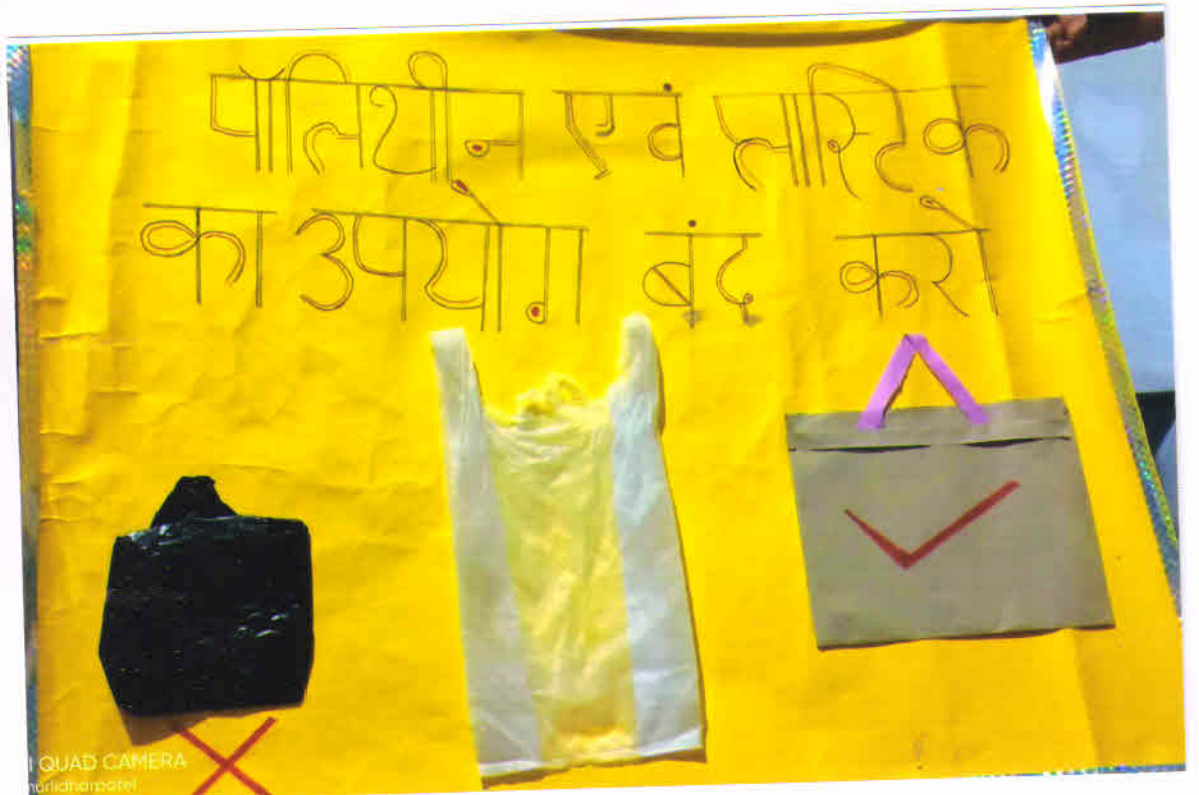 पॉलिथीन एवं प्लास्टिक
का उपयोग बंद करो
I QUAD CAMERA
murlidharpatel